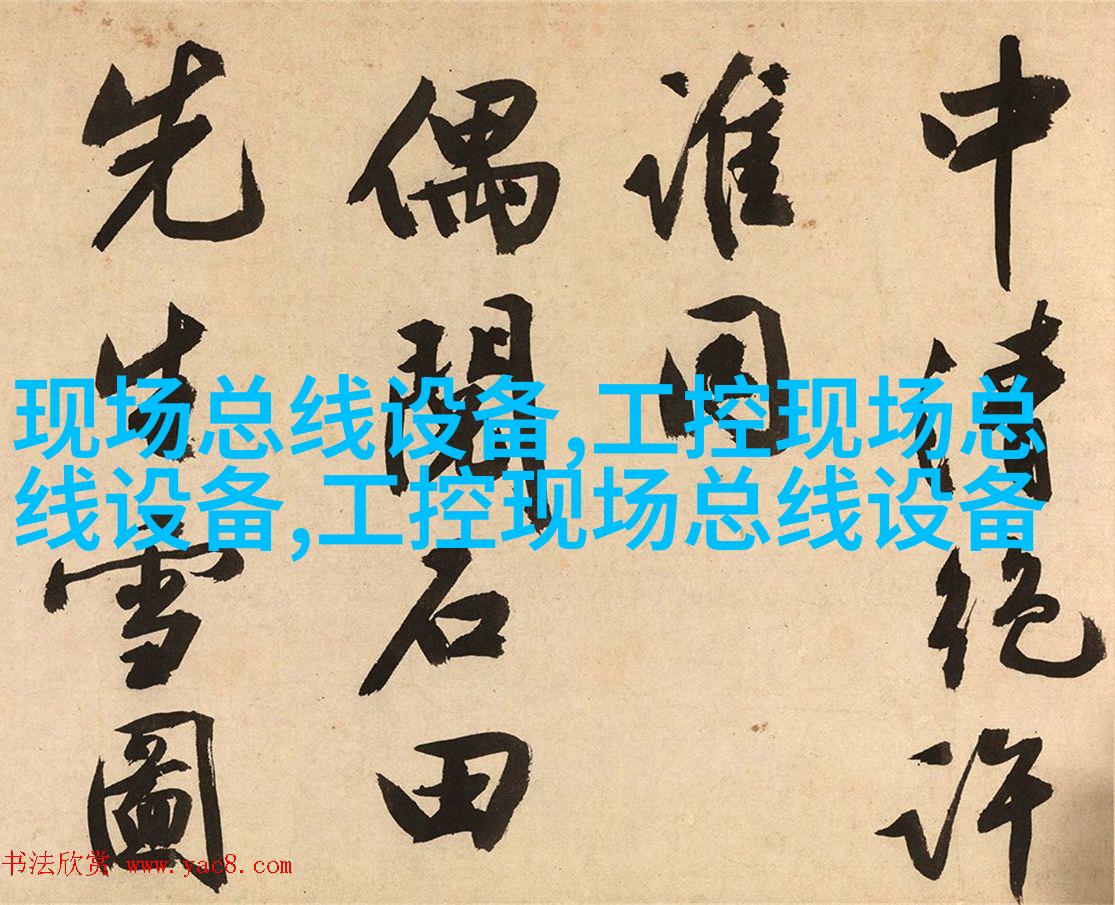 中清絶許
誰同
偶閱石田
先生雪圖
现场总线设备,工控现场总
线设备,工控现场总线设备
书法欣赏 www.yac8.com